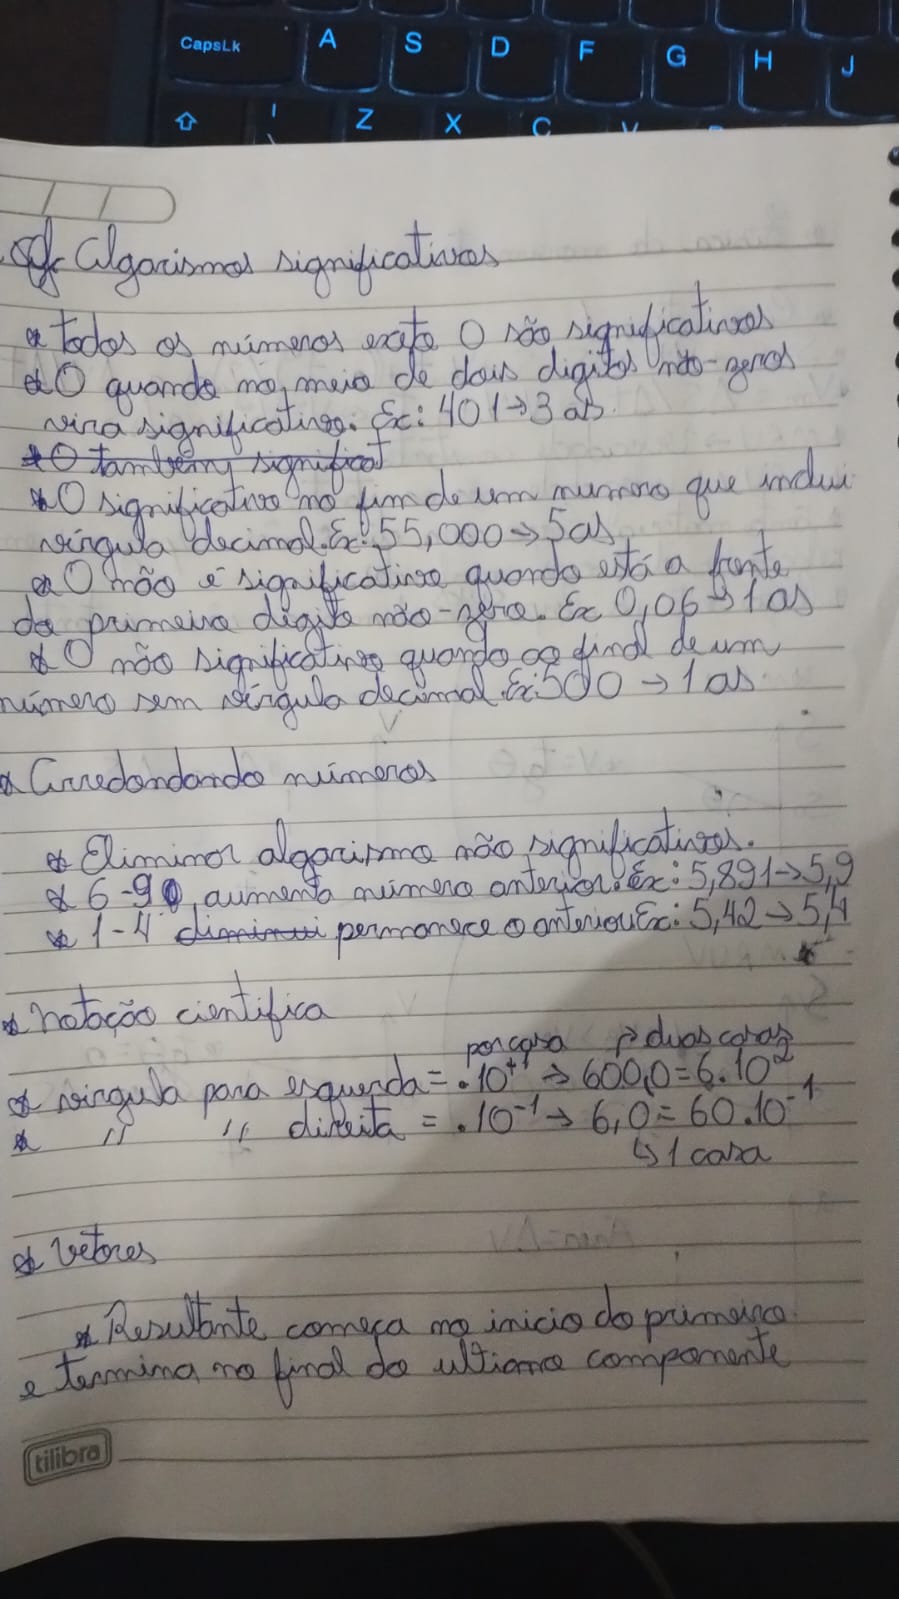 CapsLk A S D F G H J
Z X C V
Algarismos significativos
* todos os números exeto 0 são significativos
* 0 quando no meio de dois digitos não-zeros
vira significativo. Ex: 401→3 as.
* 0 também significat
* 0 significativo no fim de um numero que inclui
vírgula decimal. Ex: 55,000→5as
* 0 não é significativo quando está a frente
do primeiro digito não-zero. Ex 0,06→1 as
* 0 não significativo quando ao final de um
número sem vírgula decimal. Ex: 500→1 as
* Arredondando números
* Eliminar algarismo não significativos.
* 6-9, aumenta número anterior. Ex: 5,891→5,9
* 1-4 diminui permanece o anterior Ex: 5,42→5,4
* Notação cientifica
por casa → duas casas
* vírgula para esquerda = .10⁺¹ → 600,0 = 6.10²
* " " direita = .10⁻¹ → 6,0 = 60.10⁻¹
↳ 1 casa
* Vetores
* Resultante começa no inicio do primeiro
e termina no final do ultimo componente
tilibra